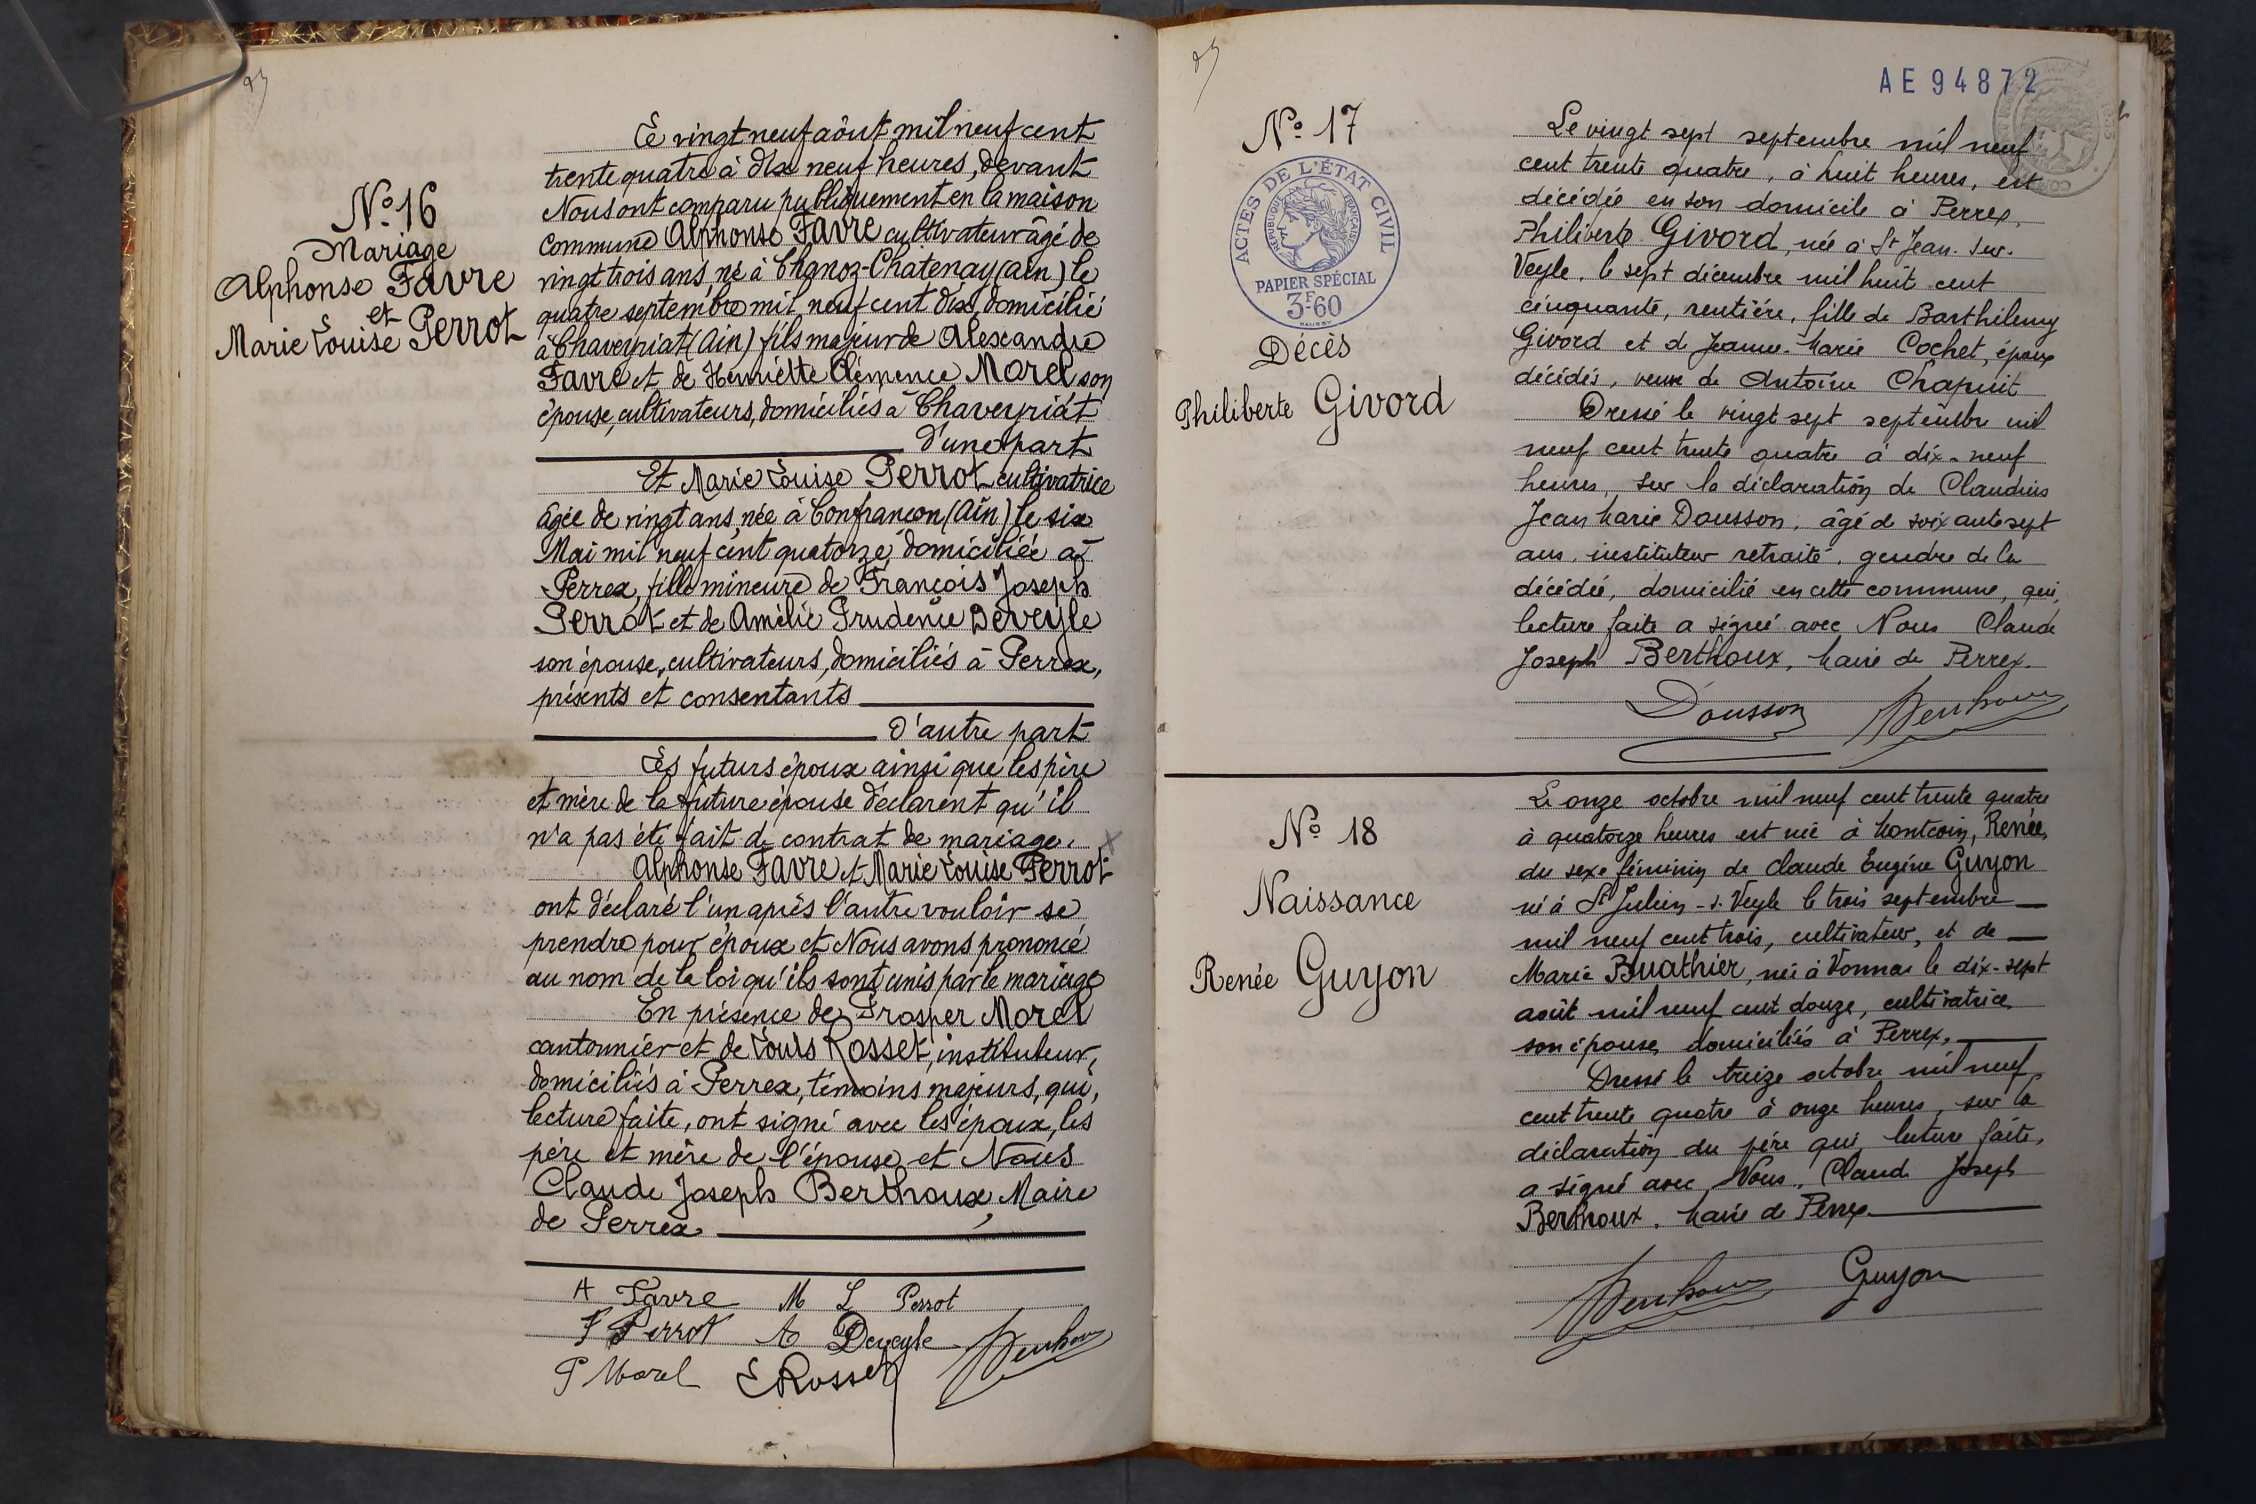 N° 16
Mariage
Alphonse Favre
et
Marie Louise Perrot
Le vingt neuf août mil neuf cent
trente quatre à dix neuf heures, devant
Nous ont comparu publiquement en la maison
commune Alphonse Favre cultivateur âgé de
vingt trois ans, né à Chanoz-Chatenay (Ain) le
quatre septembre mil neuf cent dix, domicilié
à Chaveyriat (Ain) fils majeur de Alexandre
Favre et de Henriette Clémence Morel son
épouse, cultivateurs, domiciliés à Chaveyriat
d'une part
Et Marie Louise Perrot cultivatrice
âgée de vingt ans, née à Confrançon (Ain) le six
Mai mil neuf cent quatorze, domiciliée à
Perrex, fille mineure de François Joseph
Perrot et de Amélie Prudence Deveyle
son épouse, cultivateurs, domiciliés à Perrex,
présents et consentants
d'autre part
Les futurs époux ainsi que les père
et mère de la future épouse déclarent qu'il
n'a pas été fait de contrat de mariage.
Alphonse Favre et Marie Louise Perrot
ont déclaré l'un après l'autre vouloir se
prendre pour époux et Nous avons prononcé
au nom de la loi qu'ils sont unis par le mariage
En présence de Prosper Morel
cantonnier et de Louis Rosset, instituteur,
domiciliés à Perrex, témoins majeurs, qui,
lecture faite, ont signé avec les époux, les
père et mère de l'épouse et Nous
Claude Joseph Berthoux, Maire
de Perrex
A Favre M L Perrot
F Perrot A Deveyle
P Morel L Rosset Berthoux
AE 94872
N° 17
ACTES DE L'ÉTAT CIVIL
RÉPUBLIQUE FRANÇAISE
PAPIER SPÉCIAL
3F60
Décès
Philiberte Givord
Le vingt sept septembre mil neuf
cent trente quatre, à huit heures, est
décédée en son domicile à Perrex,
Philiberte Givord, née à St Jean-sur-
Veyle, le sept décembre mil huit cent
cinquante, rentière, fille de Barthélemy
Givord et de Jeanne-Marie Cochet, époux
décédés, veuve de Antoine Chapuit
Dressé le vingt sept septembre mil
neuf cent trente quatre à dix-neuf
heures, sur la déclaration de Claudius
Jean Marie Dousson, âgé de soixante sept
ans, instituteur retraité, gendre de la
décédée, domicilié en cette commune, qui,
lecture faite a signé avec Nous Claude
Joseph Berthoux, Maire de Perrex.
Dousson Berthoux
N° 18
Naissance
Renée Guyon
Le onze octobre mil neuf cent trente quatre
à quatorze heures est née à Montcoin, Renée,
du sexe féminin de Claude Eugène Guyon
né à St Julien-s-Veyle le trois septembre
mil neuf cent trois, cultivateur, et de
Marie Buathier, née à Vonnas le dix-sept
août mil neuf cent douze, cultivatrice
son épouse, domiciliés à Perrex.
Dressé le treize octobre mil neuf
cent trente quatre à onze heures, sur la
déclaration du père qui, lecture faite,
a signé avec Nous, Claude Joseph
Berthoux, Maire de Perrex.
Berthoux Guyon